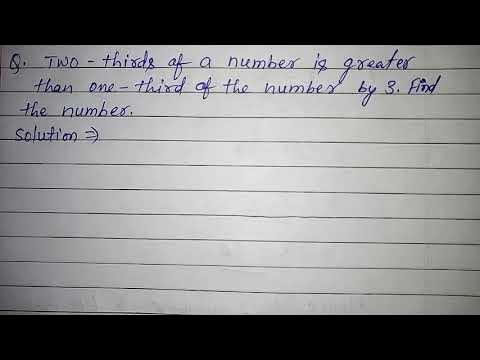 Q. Two-thirds of a number is greater
than one-third of the number by 3. Find
the number.
Solution ⇒